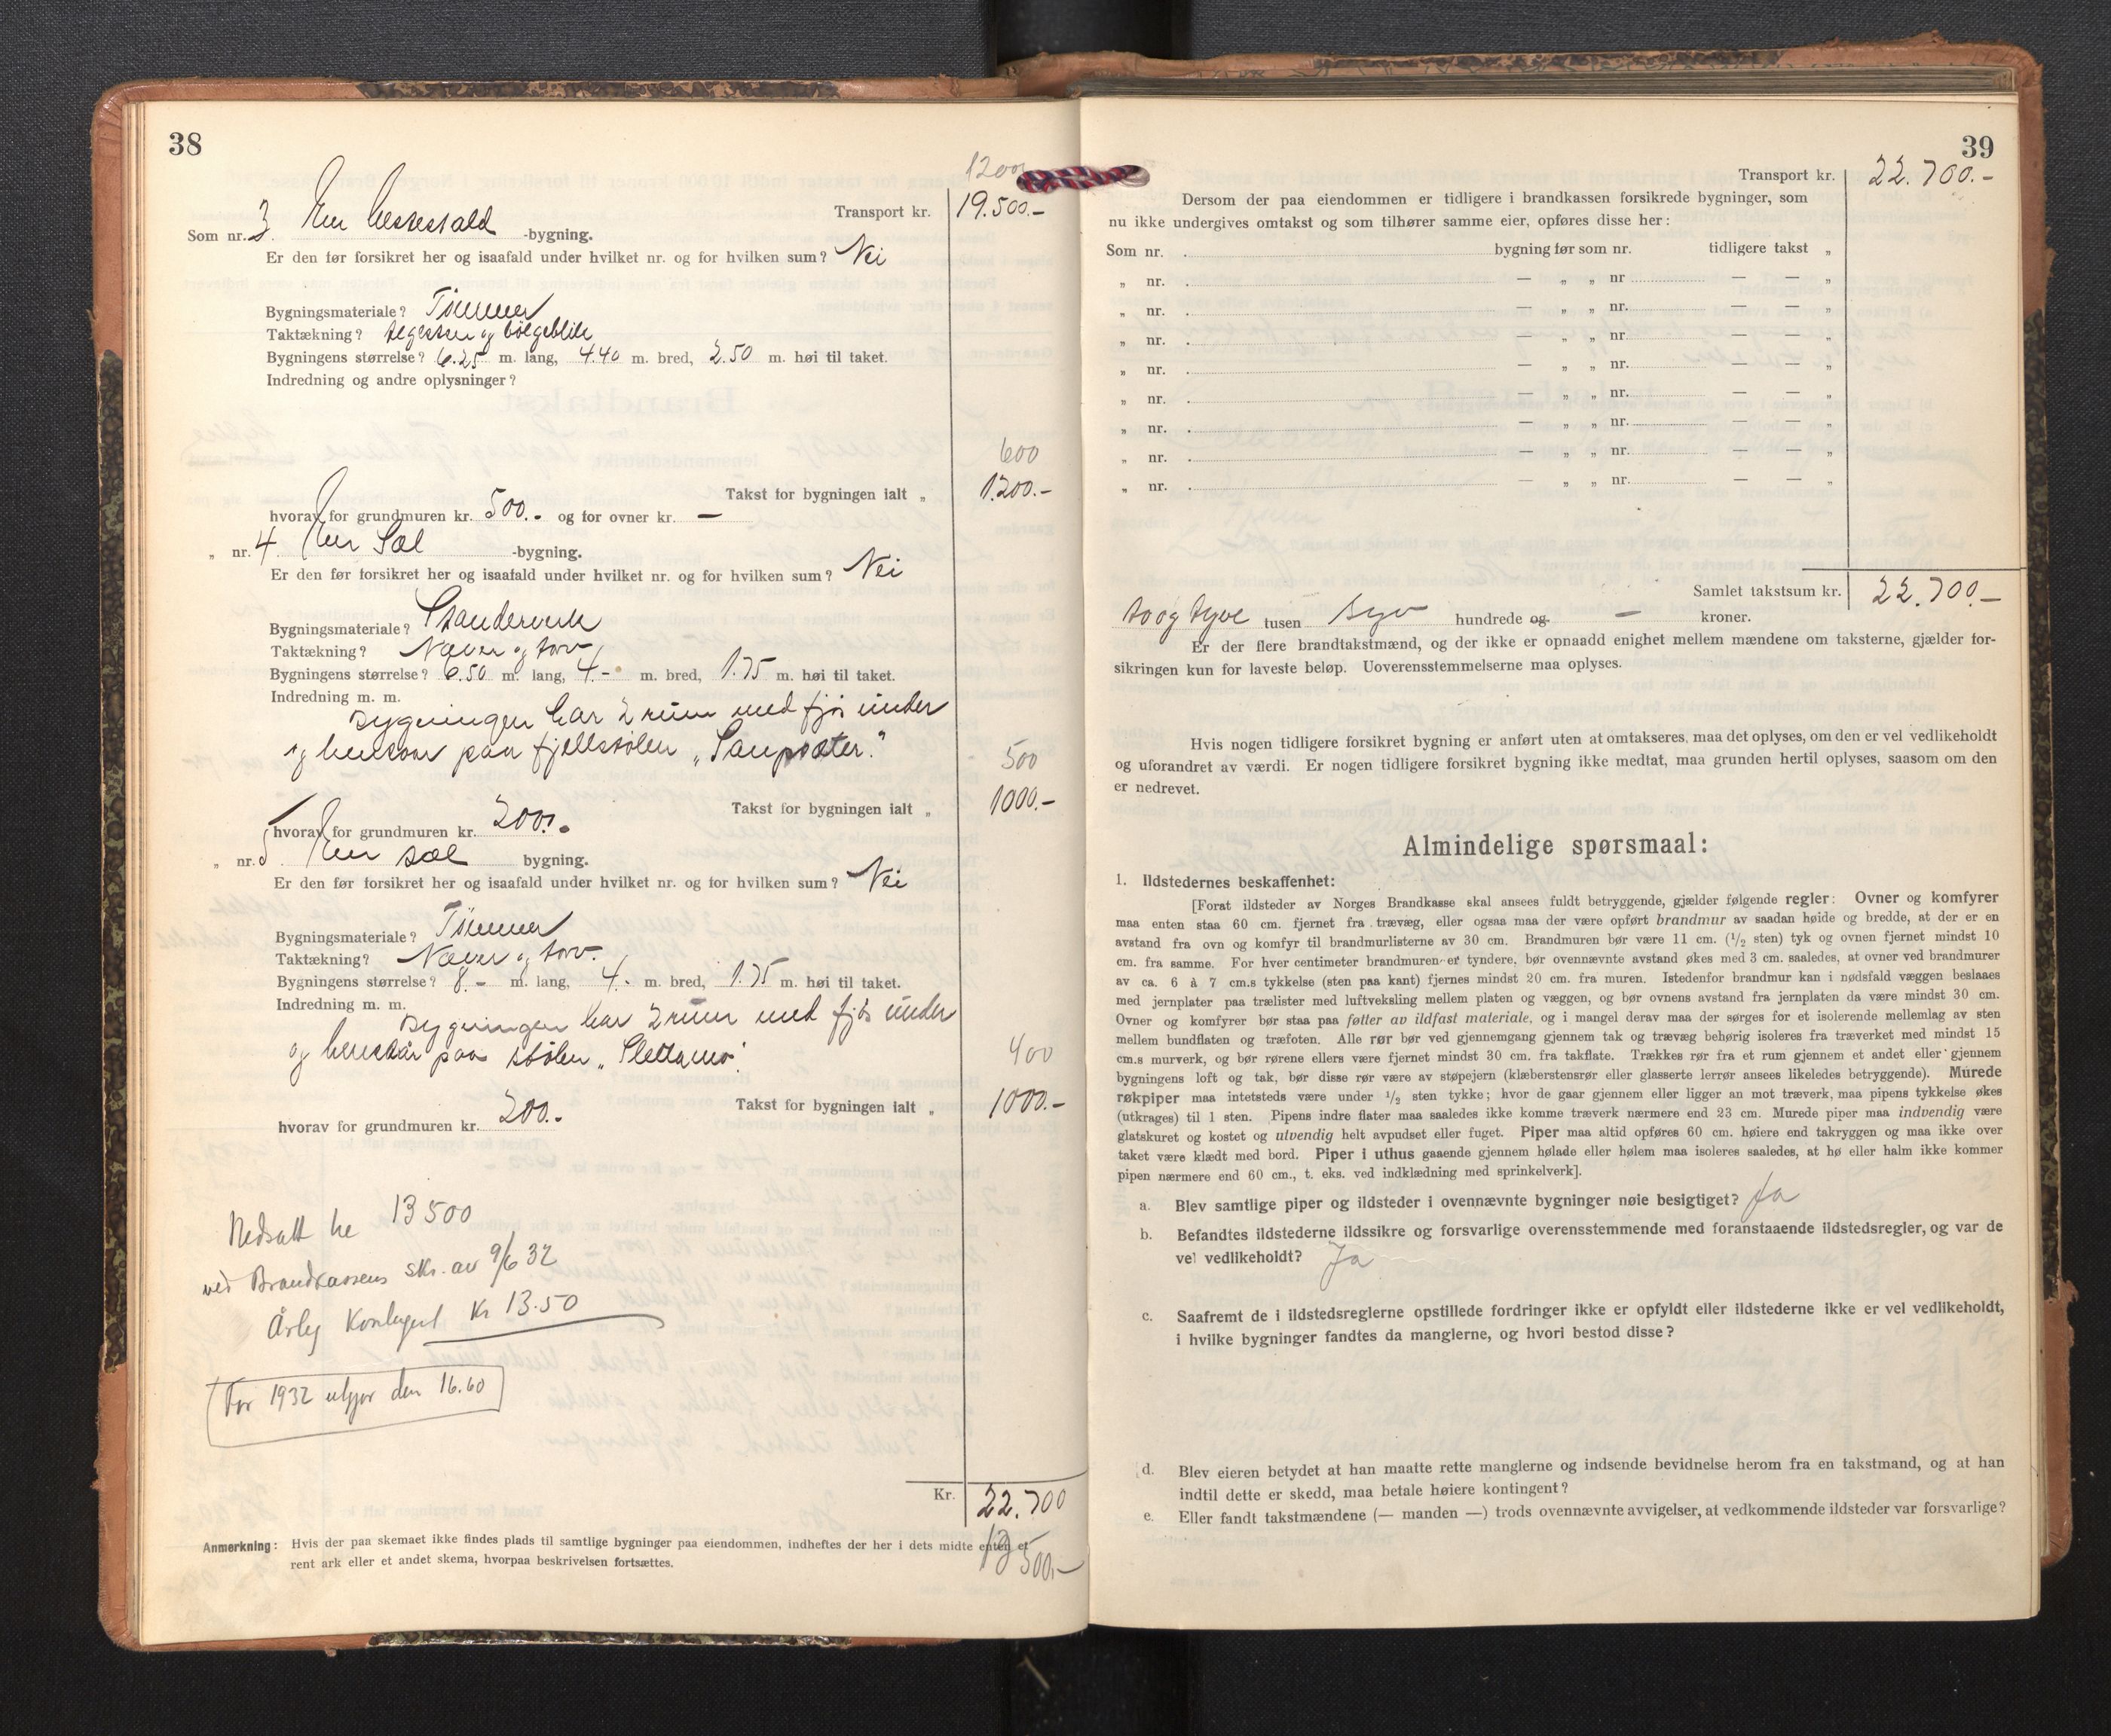 38
1200
Transport kr. 19.500.-
Som nr. 3. En hestestald -bygning.
Er den før forsikret her og isaafald under hvilket nr. og for hvilken sum? Nei
Bygningsmateriale? Tømmer
Taktækning? og bølgeblik
Bygningens størrelse? 6.25 m. lang, 4.40 m. bred, 2.50 m. høi til taket.
Indredning og andre oplysninger?
600
Takst for bygningen ialt „ 1.200.-
hvorav for grundmuren kr. 500.- og for ovner kr. —
„ nr. 4. En Sel -bygning.
Er den før forsikret her og isaafald under hvilket nr. og for hvilken sum? Nei
Bygningsmateriale? Standerverk
Taktækning? Næver og torv
Bygningens størrelse? 6.50 m. lang, 4.- m. bred, 1.75 m. høi til taket.
Indredning m. m.
Bygningen har 2 rum med fjøs under
og henstaar paa fjellstølen
500
Takst for bygningen ialt „ 1000.-
hvorav for grundmuren kr. 200.-
„ nr. 5 En sel bygning.
Er den før forsikret her og isaafald under hvilket nr. og for hvilken sum? Nei
Bygningsmateriale? Tømmer
Taktækning? Næver og torv.
Bygningens størrelse? 8.- m. lang, 4.- m. bred, 1.75 m. høi til taket.
Indredning m. m.
Bygningen har 2 rum med fjøs under
og henstår paa stølen
400
Takst for bygningen ialt „ 1000.-
hvorav for grundmuren kr. 200.-
Nedsatt til 13500
ved Brandkassens skr. av 9/6 32
Årlig Kontingent Kr 13.50
For 1932 utgjør den 16.60
Kr. 22.700
13 500.-
Anmerkning: Hvis der paa skemaet ikke findes plads til samtlige bygninger paa eiendommen, indheftes der her i dets midte enten et
rent ark eller et andet skema, hvorpaa beskrivelsen fortsættes.
39
Transport kr. 22.700.-
Dersom der paa eiendommen er tidligere i brandkassen forsikrede bygninger, som
nu ikke undergives omtakst og som tilhører samme eier, opføres disse her:
Som nr. bygning før som nr. tidligere takst „
„ nr. — „ „ nr — — „
„ nr. — „ „ nr. — — „
„ nr. — „ „ nr. — — „
„ nr. — „ „ nr. — — „
„ nr. — „ „ nr. — — „
„ nr. — „ „ nr. — — „
„ nr. — „ „ nr. — — „
„ nr. — „ „ nr. — — „
Samlet takstsum kr. 22.700.-
to og tyve tusen syv hundrede og — kroner.
Er der flere brandtakstmænd, og der ikke er opnaadd enighet mellem mændene om taksterne, gjælder for-
sikringen kun for laveste beløp. Uoverensstemmelserne maa oplyses.
Hvis nogen tidligere forsikret bygning er anført uten at omtakseres, maa det oplyses, om den er vel vedlikeholdt
og uforandret av værdi. Er nogen tidligere forsikret bygning ikke medtat, maa grunden hertil oplyses, saasom om den
er nedrevet.
Almindelige spørsmaal:
1. Ildstedernes beskaffenhet:
[Forat ildsteder av Norges Brandkasse skal ansees fuldt betryggende, gjælder følgende regler: Ovner og komfyrer
maa enten staa 60 cm. fjernet fra trævæg, eller ogsaa maa der være opført brandmur av saadan høide og bredde, at der er en
avstand fra ovn og komfyr til brandmurlisterne av 30 cm. Brandmuren bør være 11 cm. (1/2 sten) tyk og ovnen fjernet mindst 10
cm. fra samme. For hver centimeter brandmuren er tyndere, bør ovennævnte avstand økes med 3 cm. saaledes, at ovner ved brandmurer
av ca. 6 à 7 cm.s tykkelse (sten paa kant) fjernes mindst 20 cm. fra muren. Istedenfor brandmur kan i nødsfald væggen beslaaes
med jernplater paa trælister med luftveksling mellem platen og væggen, og bør ovnens avstand fra jernplaten da være mindst 30 cm.
Ovner og komfyrer bør staa paa føtter av ildfast materiale, og i mangel derav maa der sørges for et isolerende mellemlag av sten
mellem bundflaten og træfoten. Alle rør bør ved gjennemgang gjennem tak og trævæg behørig isoleres fra træverket med mindst 15
cm.s murverk, og bør rørene ellers være fjernet mindst 30 cm. fra takflate. Trækkes rør fra et rum gjennem et andet eller gjennem
bygningens loft og tak, bør disse rør være av støpejern (klæberstensrør eller glasserte lerrør ansees likeledes betryggende). Murede
røkpiper maa intetsteds være under 1/2 sten tykke; hvor de gaar gjennem eller ligger an mot træverk, maa pipens tykkelse økes
(utkrages) til 1 sten. Pipens indre flater maa saaledes ikke komme træverk nærmere end 23 cm. Murede piper maa indvendig være
glatskuret og kostet og utvendig helt avpudset eller fuget. Piper maa altid opføres 60 cm. høiere end takryggen og maa ikke over
taket være klædt med bord. Piper i uthus gaaende gjennem hølade eller hølem maa isoleres saaledes, at hø eller halm ikke kommer
pipen nærmere end 60 cm., t. eks. ved indklædning med sprinkelverk].
a. Blev samtlige piper og ildsteder i ovennævnte bygninger nøie besigtiget? Ja
b. Befandtes ildstederne ildssikre og forsvarlige overensstemmende med foranstaaende ildstedsregler, og var de
vel vedlikeholdt? Ja
c. Saafremt de i ildstedsreglerne opstillede fordringer ikke er opfyldt eller ildstederne ikke er vel vedlikeholdt,
i hvilke bygninger fandtes da manglerne, og hvori bestod disse?
d. Blev eieren betydet at han maatte rette manglerne og indsende bevidnelse herom fra en takstmand, og at han
indtil dette er skedd, maa betale høiere kontingent?
e. Eller fandt takstmændene (— manden —) trods ovennævnte avvigelser, at vedkommende ildsteder var forsvarlige?